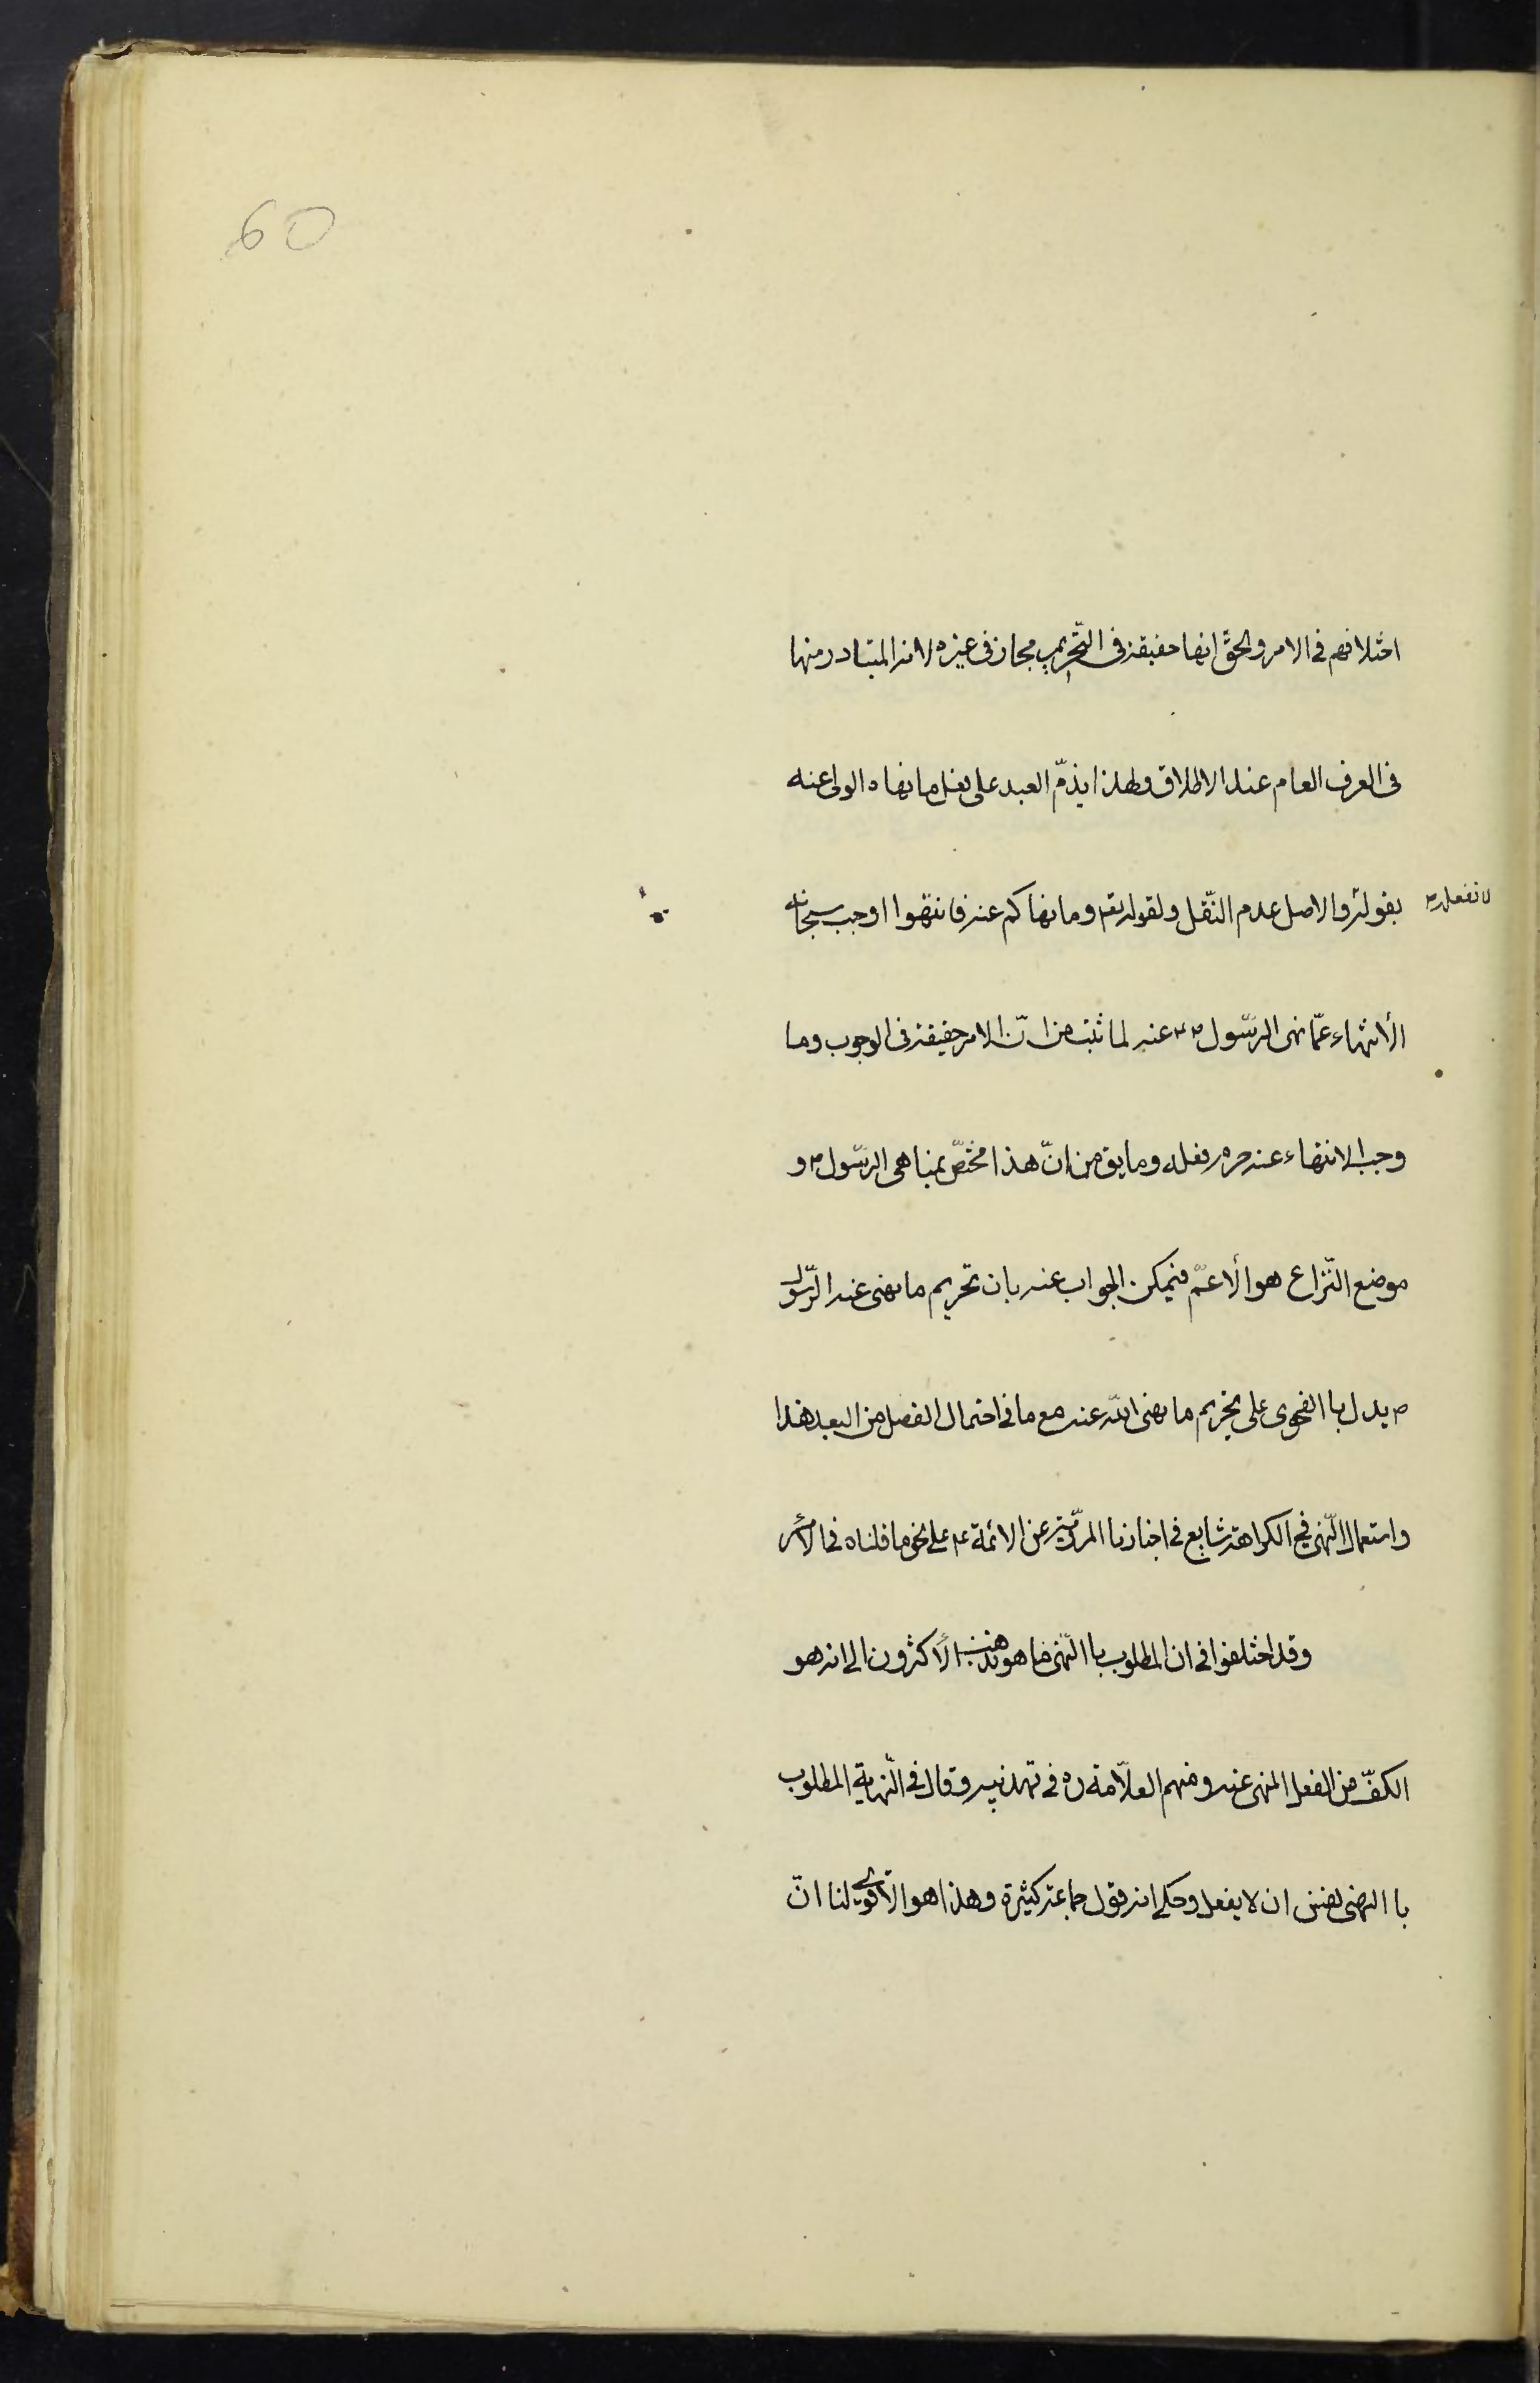 60
اختلافهم في الامر والحقّ انها حقيقة في التّحريم مجاز في غيره لانه المتبادر منها
في العرف العام عند الاطلاق ولهذا يذمّ العبد على فعل ما نهاه المولى عنه
بقوله والاصل عدم النّقل ولقوله تعم وما نهاكم عنه فانتهوا اوجب سبحانه
لا تفعله
الأنتهاء عمّا نهى الرسّول ص عنه لما ثبت من انّ الامر حقيقة في الوجوب وما
وجب الانتهاء عنه حرم فعله وما يق من انّ هذا مختصّ بمناهى الرسّول ص و
موضع النّزاع هو الأعمّ فيمكن الجواب عنه بان تحريم ما نهى عنه الرّسول
ص يدل با الفحوى على تحريم ما نهى اللّه عنه مع ما في احتمال الفصل من البعد هذا
واستعمال النّهى في الكراهة شايع في اخبارنا المرويّة عن الائمة ع على نحو ما قلناه في الأمر
وقد اختلفوا في ان المطلوب با النّهى ما هو فذهب الأكثرون الى انه هو
الكفّ من الفعل المنهى عنه ومنهم العلاّمة ره في تهذيبه وقال في النّهاية المطلوب
با النهى نفس ان لا يفعل وحكى انه قول جماعة كثيرة وهذا هو الأقوى لنا انّ